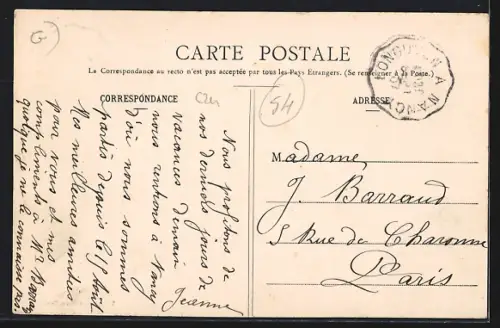 G
CARTE POSTALE
La Correspondance au recto n'est pas acceptée par tous les Pays Etrangers. (Se renseigner à la Poste.)
CORRESPONDANCE
ADRESSE
54
LONGUYON A NANCY
Nous profitons de
nos derniers jours de
vacances demain
nous rentrons à Nancy
d'où nous sommes
partis depuis le 15 Août
Mes meilleures amitiés
pour vous et mes
compliments à Mr Barraud
quoique je ne le connaisse pas.
Jeanne
Madame
J. Barraud
5 Rue de Charonne
Paris